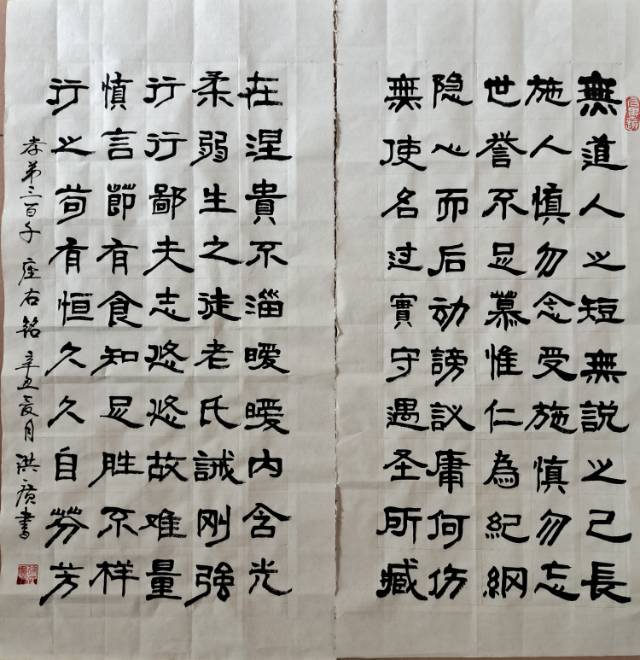 無道人之短無説之己長
施人慎勿念受施慎勿忘
世誉不足慕惟仁為紀綱
隐心而后动謗议庸何伤
無使名过實守遇圣所臧
在涅貴不淄曖曖内含光
柔弱生之徒老氏誡刚強
行行鄙夫志悠悠故难量
慎言節有食知足胜不样
行之苟有恒久久自芬芳
孝弟三百千 座右铭 辛丑夏月 洪广書